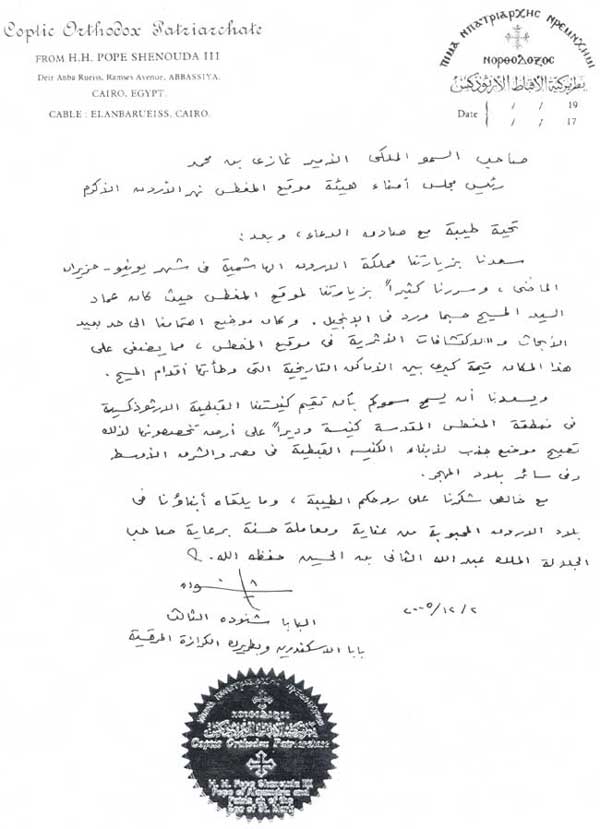 Coptic Orthodox Patriarchate
FROM H.H. POPE SHENOUDA III
Deir Anba Rueiss, Ramses Avenue, ABBASSIYA,
CAIRO, EGYPT.
CABLE : ELANBARUEISS, CAIRO.
ⲚⲞⲢⲐⲞⲆⲞⲜⲞⲤ
بطريركية الأقباط الأرثوذكس
Date / / 19
/ / 17
صاحب السمو الملكى الأمير غازى بن محمد
رئيس مجلس أمناء هيئة موقع المغطس نهر الأردن الأكرم
تحية طيبة مع صادق الدعاء، وبعد:
سعدنا بزيارتنا مملكة الأردن الهاشمية فى شهر يونيو - حزيران
الماضى، وسررنا كثيراً بزيارتنا لموقع المغطس حيث كان عماد
السيد المسيح حسبما ورد فى الإنجيل. وكان موضع اهتمامنا الى حد بعيد
الأبحاث والاكتشافات الأثرية فى موقع المغطس، مما يضفى على
هذا المكان قيمة كبرى بين الأماكن التاريخية التى وطأتها أقدام المسيح.
ويسعدنا أن يسمح سموكم بأن تقيم كنيستنا القبطية الارثوذكسية
فى منطقة المغطس المقدسة كنيسة وديراً على أرض تخصصونها لذلك
تصبح موضع جذب لأبناء الكنيسة القبطية فى مصر والشرق الأوسط
وفى سائر بلاد المهجر.
مع خالص شكرنا على روحكم الطيبة، وما يلقاه أبناؤنا فى
بلاد الاردن المحبوبة من عناية ومعاملة حسنة برعاية صاحب
الجلالة الملك عبد الله الثانى بن الحسين حفظه الله.
شنوده
٢٠٠٥/١٢/٢
البابا شنوده الثالث
بابا الاسكندرية وبطريرك الكرازة المرقسية
Coptic Orthodox Patriarchate
H. H. Pope Shenouda III
Pope of Alexandria and
See of St. Mark